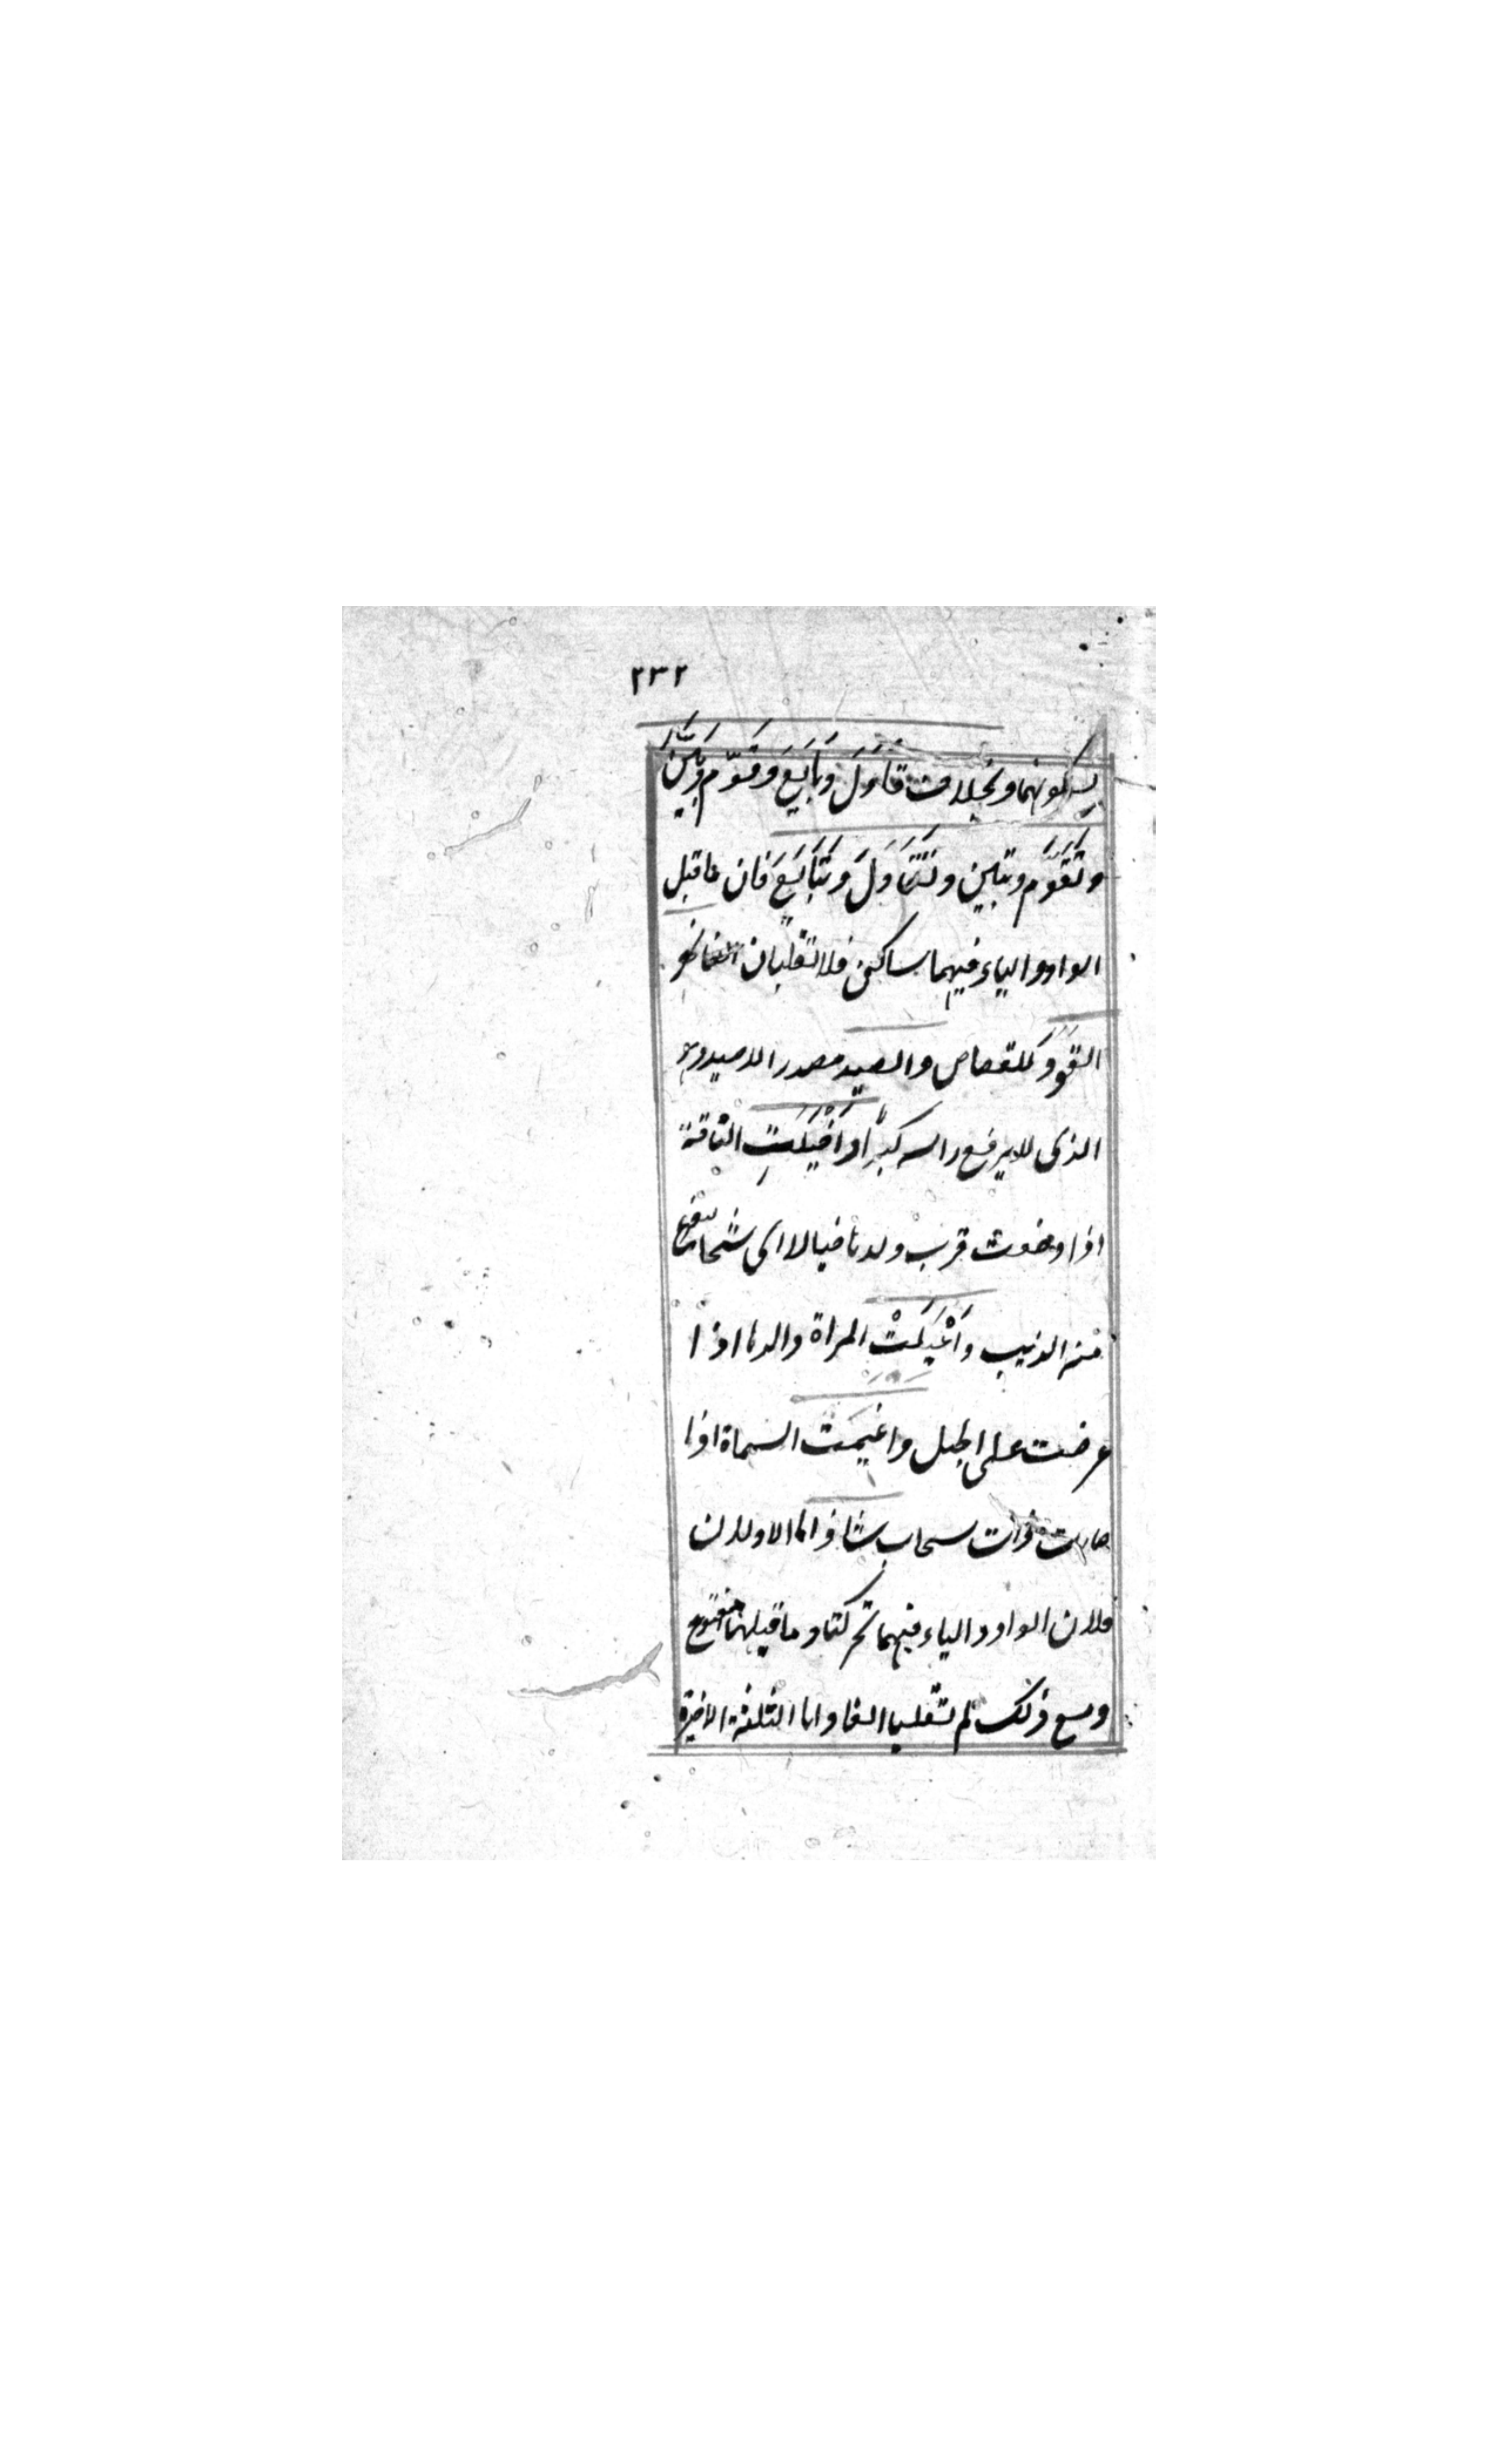 ٢٣٢
بسكونهما وبخلاف قَاوَلَ وبَايَعَ وقَوَّم وبَيَّنَ
وتَقَوَّم وتبين وتَقَاوَلَ وتَبَايَعَ فان ما قبل
الواو والياء فيهما ساكن فلا تقلبان الفا نحو
القَوَد للقصاص والصيد مصدر الاصيد وهو
الذى لا يرفع راسه كبرًا وَاَخْيَلَتِ الناقة
اذا وضعت قرب ولدها خيالا اى شخصا يفزع
منه الذيب واَغْيَلَتْ المراة والدها اذا
عرضت على الجبل واغيمَت السماة اذا
صارت ذات سحاب شاذ اما الاولان
فلان الواو والياء فيهما تحركتا وما قبلهما مفتوح
ومع ذلك لم تقلبا الفا واما الثلثة الاخيرة